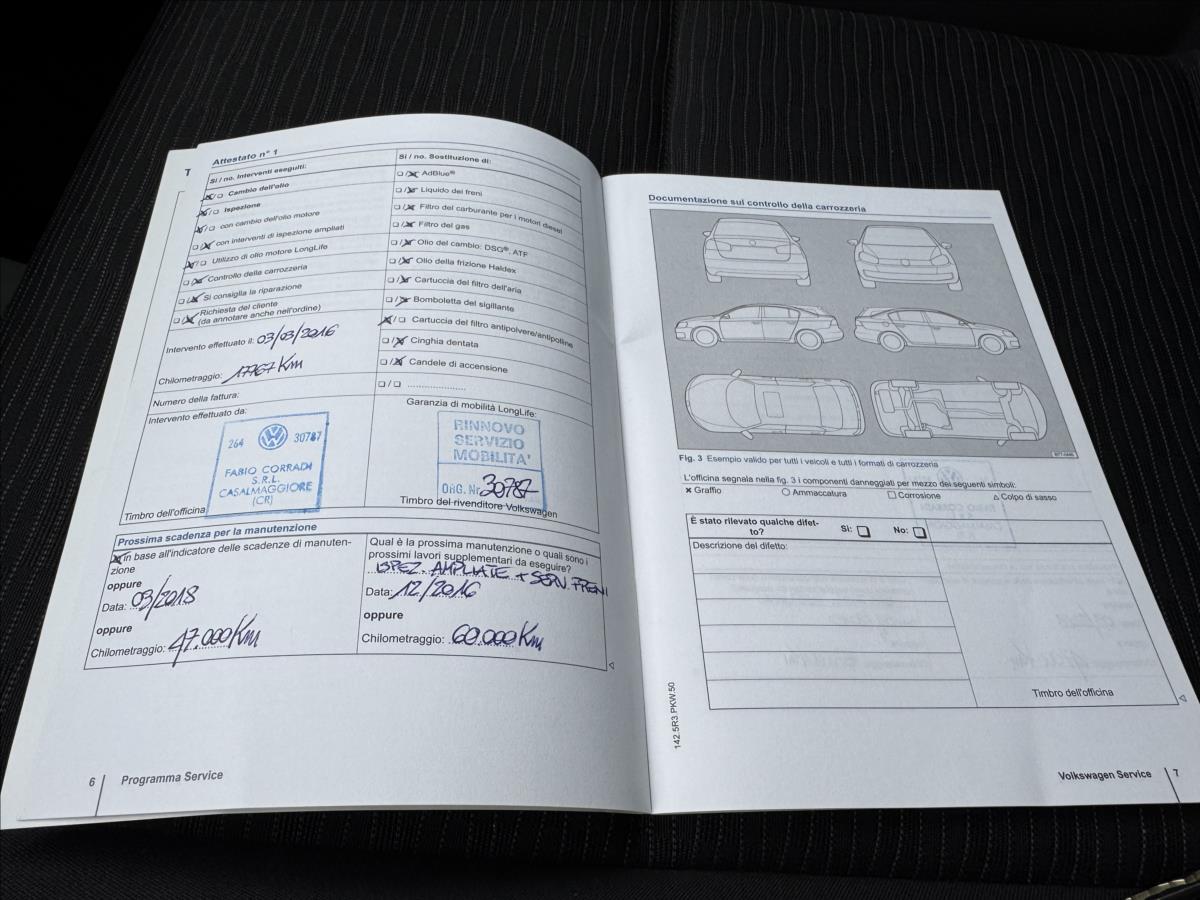 T
Attestato n° 1
Si / no. Interventi eseguiti:
Cambio dell'olio
Ispezione
con cambio dell'olio motore
con interventi di ispezione ampliati
Utilizzo di olio motore LongLife
Controllo della carrozzeria
Si consiglia la riparazione
Richiesta del cliente
(da annotare anche nell'ordine)
Intervento effettuato il: 03/03/2016
Chilometraggio: 17767 Km
Numero della fattura:
Intervento effettuato da:
264 30787
FABIO CORRADI
S.R.L.
CASALMAGGIORE
(CR)
Timbro dell'officina
Si / no. Sostituzione di:
AdBlue®
Liquido dei freni
Filtro del carburante per i motori diesel
Filtro del gas
Olio del cambio: DSG®, ATF
Olio della frizione Haldex
Cartuccia del filtro dell'aria
Bomboletta del sigillante
Cartuccia del filtro antipolvere/antipolline
Cinghia dentata
Candele di accensione
Garanzia di mobilità LongLife:
RINNOVO
SERVIZIO
MOBILITA'
ORG. Nr. 30787
Timbro del rivenditore Volkswagen
Prossima scadenza per la manutenzione
in base all'indicatore delle scadenze di manuten-
zione
oppure
Data: 03/2018
oppure
Chilometraggio: 47.000 Km
Qual è la prossima manutenzione o quali sono i
prossimi lavori supplementari da eseguire?
ISPEZ. AMPLIATE + SERV. FRENI
Data: 12/2016
oppure
Chilometraggio: 60.000 Km
6 Programma Service
Documentazione sul controllo della carrozzeria
Fig. 3 Esempio valido per tutti i veicoli e tutti i formati di carrozzeria
L'officina segnala nella fig. 3 i componenti danneggiati per mezzo dei seguenti simboli:
× Graffio ○ Ammaccatura □ Corrosione △ Colpo di sasso
È stato rilevato qualche difet-
to? Sì: No:
Descrizione del difetto:
Timbro dell'officina
142.5R3.PKW.50
Volkswagen Service 7